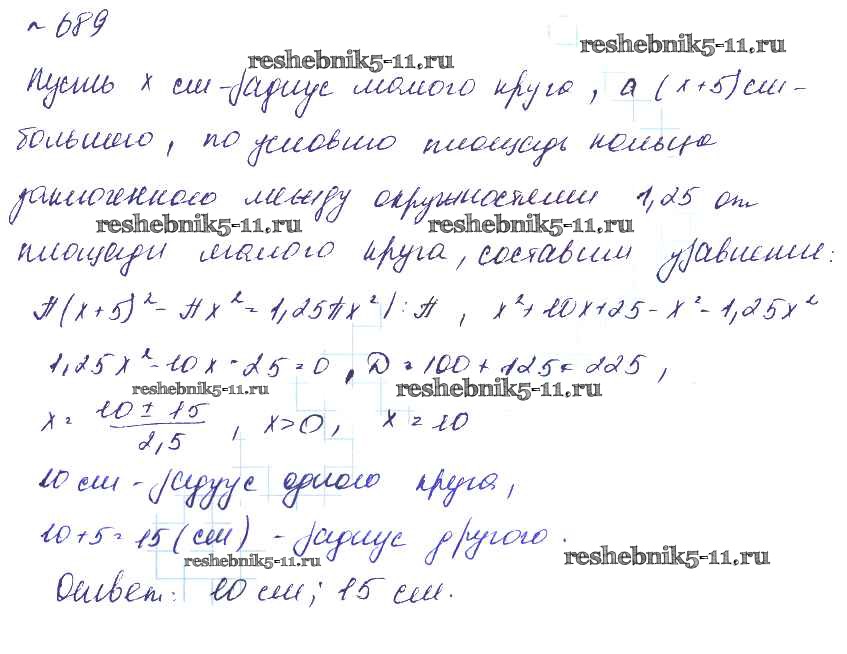 № 689
reshebnik5-11.ru reshebnik5-11.ru
Пусть x см - радиус малого круга, а (x+5) см -
большого, по условию площадь кольца
заключенного между окружностями 1,25 от
reshebnik5-11.ru reshebnik5-11.ru
площади малого круга, составим уравнение:
π(x+5)² - πx² = 1,25πx² | : π , x² + 10x + 25 - x² - 1,25x²
1,25x² - 10x - 25 = 0 , D = 100 + 125 = 225 ,
reshebnik5-11.ru reshebnik5-11.ru
x = (10 ± 15)/2,5 , x > 0 , x = 10
10 см - радиус одного круга,
10 + 5 = 15 (см) - радиус другого.
reshebnik5-11.ru reshebnik5-11.ru
Ответ: 10 см; 15 см.